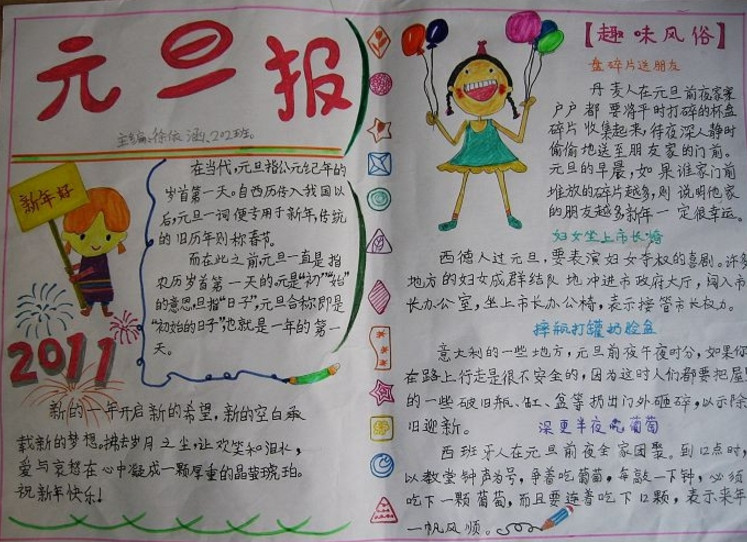 元旦报
主编:徐依涵、202班。
新年好
2011
在当代,元旦指公元纪年的
岁首第一天。自西历传入我国以
后,元旦一词便专用于新年,传统
的旧历年则称春节。
而在此之前元旦一直是指
农历岁首第一天的。元是“初”“始”
的意思,旦指“日子”,元旦合称即是
“初始的日子”,也就是一年的第一
天。
新的一年开启新的希望,新的空白承
载新的梦想。拂去岁月之尘,让欢笑和泪水,
爱与哀愁在心中凝成一颗厚重的晶莹琥珀。
祝新年快乐!
【趣味风俗】
盘碎片送朋友
丹麦人在元旦前夜家家
户户都要将平时打碎的杯盘
碎片收集起来,待夜深人静时
偷偷地送至朋友家的门前。
元旦的早晨,如果谁家门前
堆放的碎片越多,则说明他家
的朋友越多新年一定很幸运。
妇女坐上市长椅
西德人过元旦,要表演妇女夺权的喜剧。许多
地方的妇女成群结队地冲进市政府大厅,闯入市
长办公室,坐上市长办公椅,表示接管市长权力。
摔瓶打罐扔脸盆
意大利的一些地方,元旦前夜午夜时分,如果你
在路上行走是很不安全的,因为这时人们都要把屋
的一些破旧瓶、缸、盆等扔出门外砸碎,以示除
旧迎新。
深更半夜吃葡萄
西班牙人在元旦前夜全家团聚。到12点时,
以教堂钟声为号,争着吃葡萄,每敲一下钟,必须
吃下一颗葡萄,而且要连着吃下12颗,表示来年
一帆风顺。